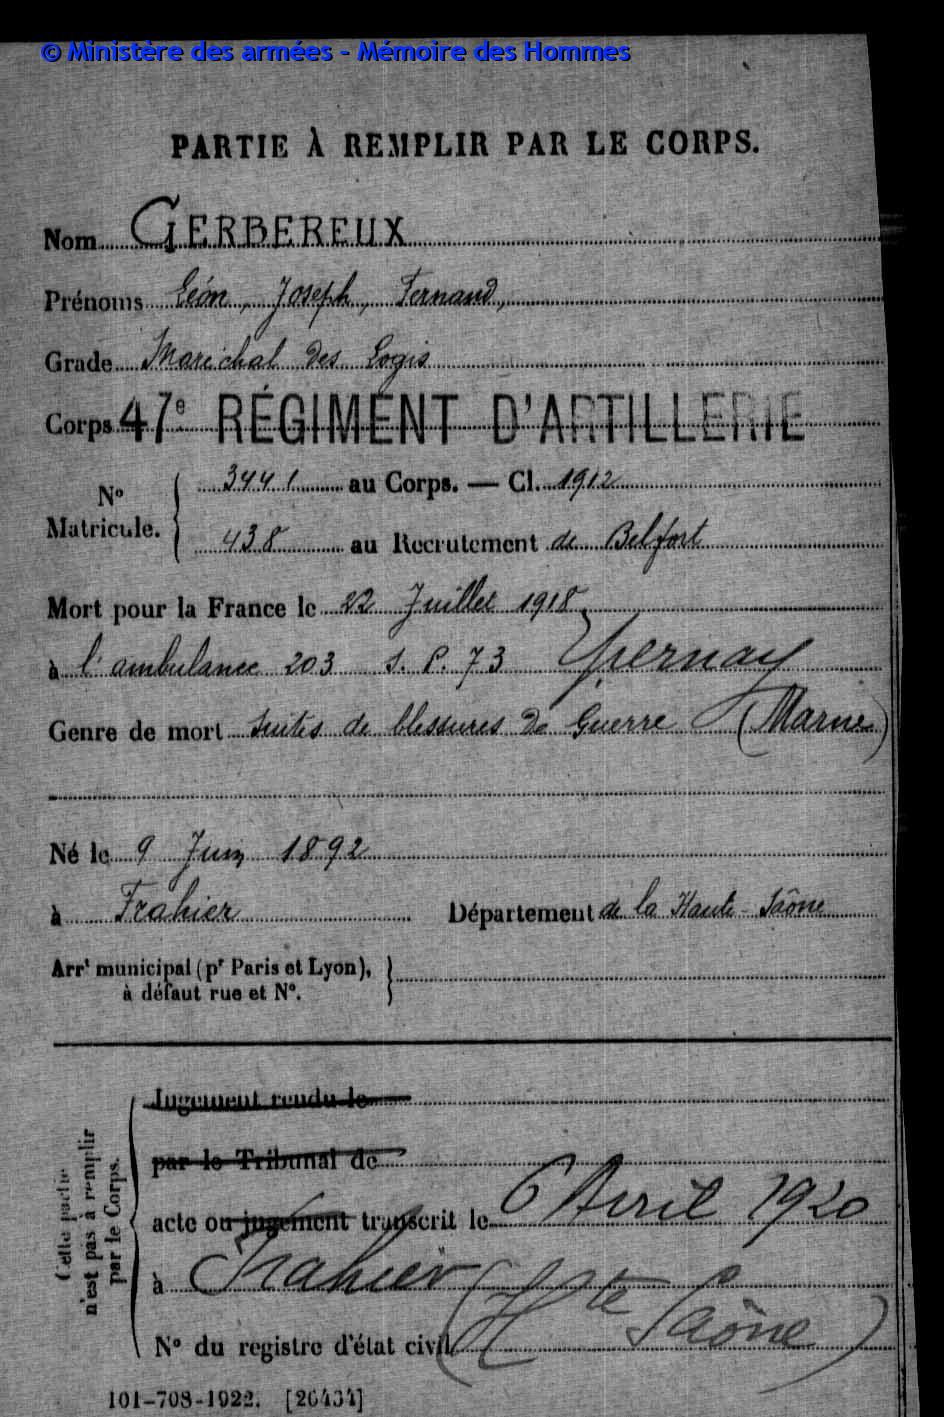 © Ministère des armées - Mémoire des Hommes
PARTIE À REMPLIR PAR LE CORPS.
Nom GERBEREUX
Prénoms Léon, Joseph, Fernand,
Grade Maréchal des Logis
Corps 47e RÉGIMENT D'ARTILLERIE
No Matricule. { 3441 au Corps. — Cl. 1912
438 au Recrutement de Belfort
Mort pour la France le 22 Juillet 1918
à l'ambulance 203 S. P. 73 Epernay
Genre de mort suites de blessures de Guerre (Marne)
Né le 9 Juin 1892
à Frahier Département de la Haute-Saône
Arrt municipal (pr Paris et Lyon), }
à défaut rue et No.
Cette partie
n'est pas à remplir
par le Corps.
Jugement rendu le
par le Tribunal de
acte ou jugement transcrit le 6 Avril 1920
à Frahier (Hte Saône)
No du registre d'état civil
101-708-1922. [26434]